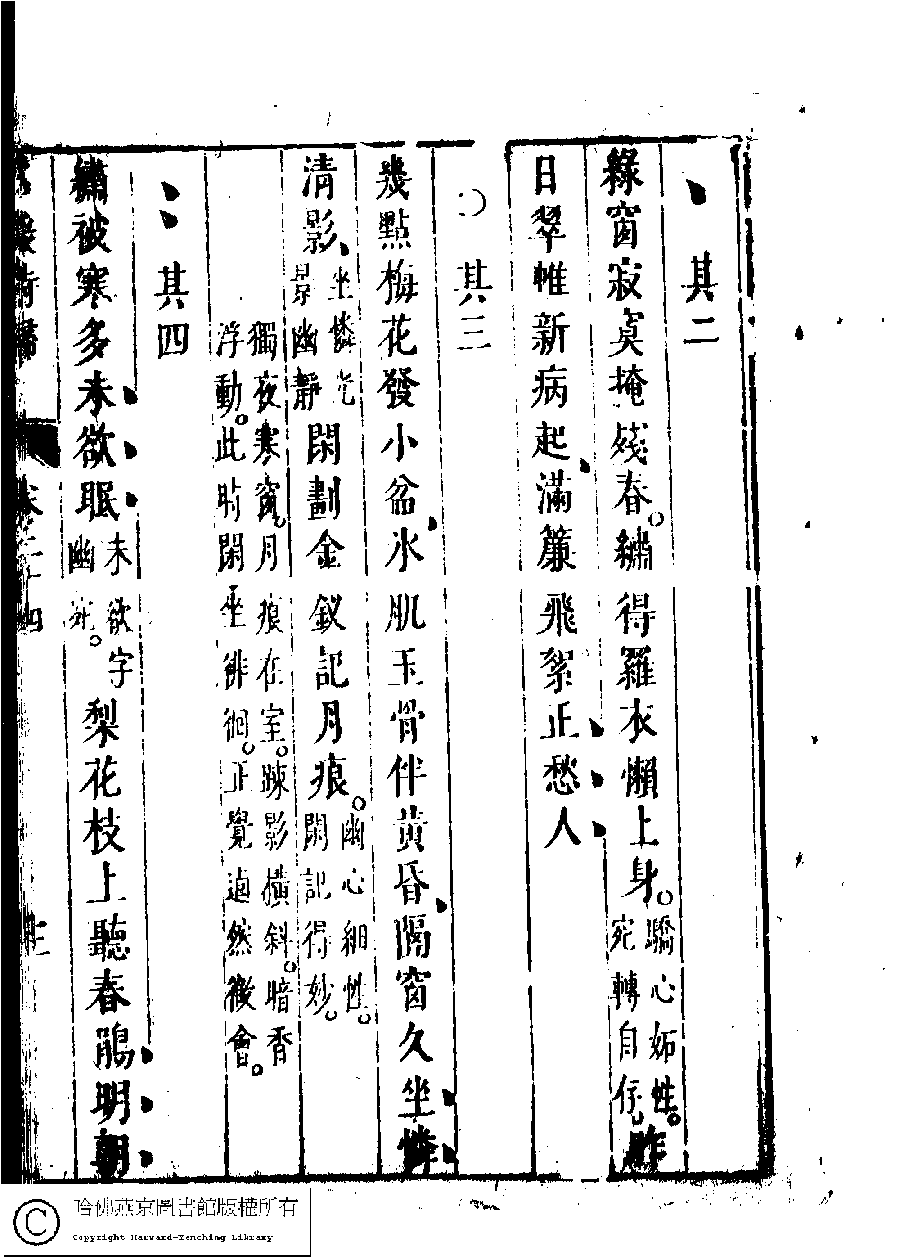 其二
綠窗寂寞掩殘春。繡得羅衣懶上身。驕心妬性。宛轉自仔昨
日翠帷新病起滿簾飛絮正愁人
○ 其三
幾點梅花發小盆冰肌玉骨伴黃昏隔窗久坐憐
清影坐憐光景幽靜閑劃金釵記月痕。幽心細性。閑記得妙。
獨夜寒窗。月痕在室。踈影橫斜。暗香
浮動。此時閑坐徘徊。正覺逈然微會。
其四
繡被寒多未欲眠未欲字幽宛。梨花枝上聽春鵑明朝
詩歸 卷二十四
哈佛燕京圖書館版權所有
Copyright Harvard-Yenching Library